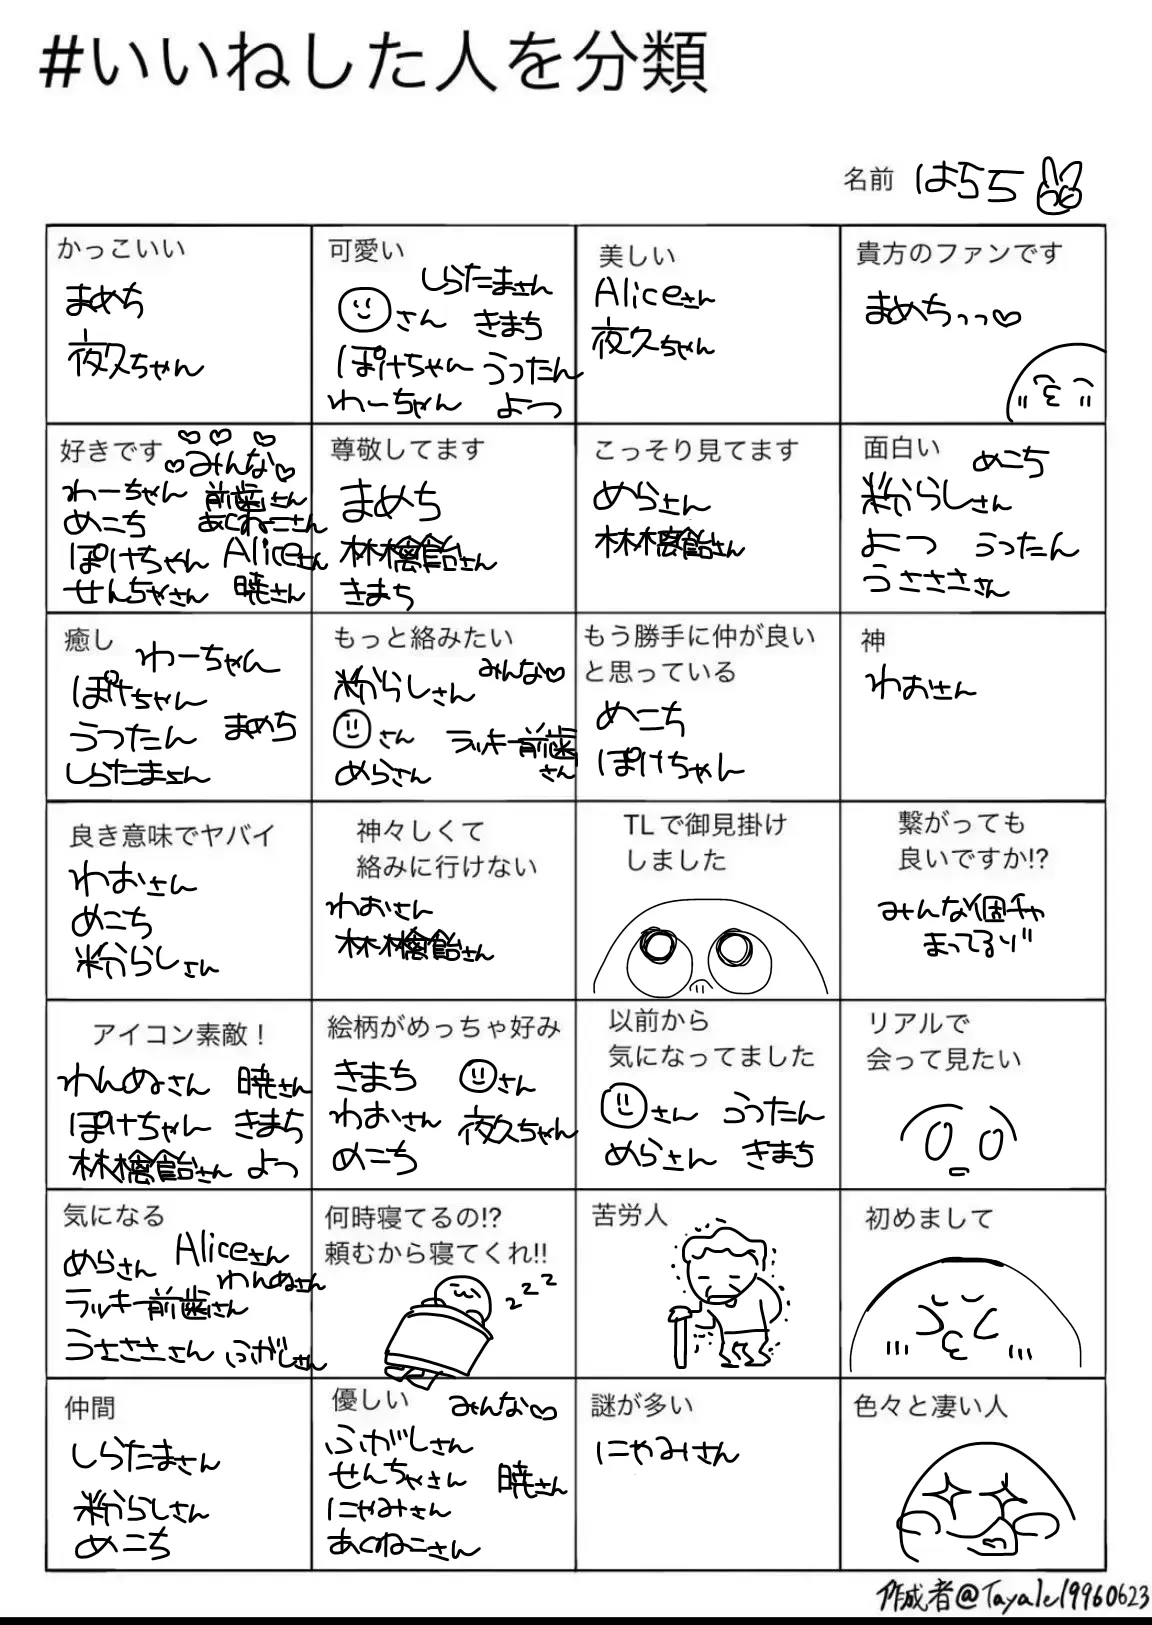 #いいねした人を分類
名前 はらち
かっこいい
まめち
夜久ちゃん
可愛い
しらたまさん
さん きまち
ぽけちゃん うったん
わーちゃん よつ
美しい
Aliceさん
夜久ちゃん
貴方のファンです
まめちっっ♡
好きです
みんな
わーちゃん 前歯さん
めこち あくねこさん
ぽけちゃん Aliceさん
せんちゃさん 暁さん
尊敬してます
まめち
林檎飴さん
きまち
こっそり見てます
めらさん
林檎飴さん
面白い
めこち
粉からしさん
よつ うったん
うさささん
癒し
わーちゃん
ぽけちゃん
うったん まめち
しらたまさん
もっと絡みたい
みんな♡
粉からしさん
さん ラッキー前歯
さん
めらさん
もう勝手に仲が良い
と思っている
めこち
ぽけちゃん
神
わおさん
良き意味でヤバイ
わおさん
めこち
粉からしさん
神々しくて
絡みに行けない
わおさん
林檎飴さん
TLで御見掛け
しました
繋がっても
良いですか!?
みんな個チャ
まってるゾ
アイコン素敵！
わんぬさん 暁さん
ぽけちゃん きまち
林檎飴さん よつ
絵柄がめっちゃ好み
きまち さん
わおさん 夜久ちゃん
めこち
以前から
気になってました
さん うったん
めらさん きまち
リアルで
会って見たい
気になる
めらさん Aliceさん
わんぬさん
ラッキー前歯さん
うさささん ふがしさん
何時寝てるの!?
頼むから寝てくれ!!
zzz
苦労人
初めまして
仲間
しらたまさん
粉からしさん
めこち
優しい
みんな♡
ふがしさん
せんちゃさん 暁さん
にゃみさん
あくねこさん
謎が多い
にゃみさん
色々と凄い人
作成者@Tayale19960623